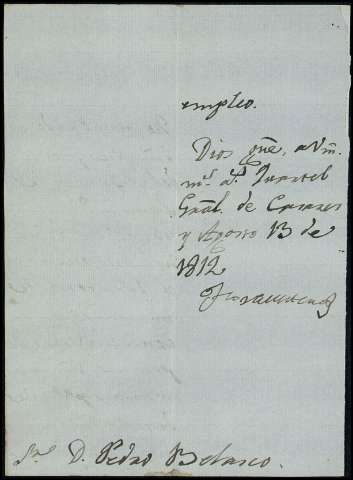 empleo.
Dios gũe. a Vm̃.
m.s a.s Quartel
Gral. de Caraz
y Agosto 13 de
1812
Sr. D. Pedro Belasco.